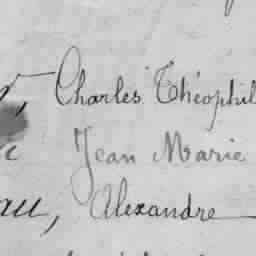 Charles Théophil
Jean Marie
au, Alexandre